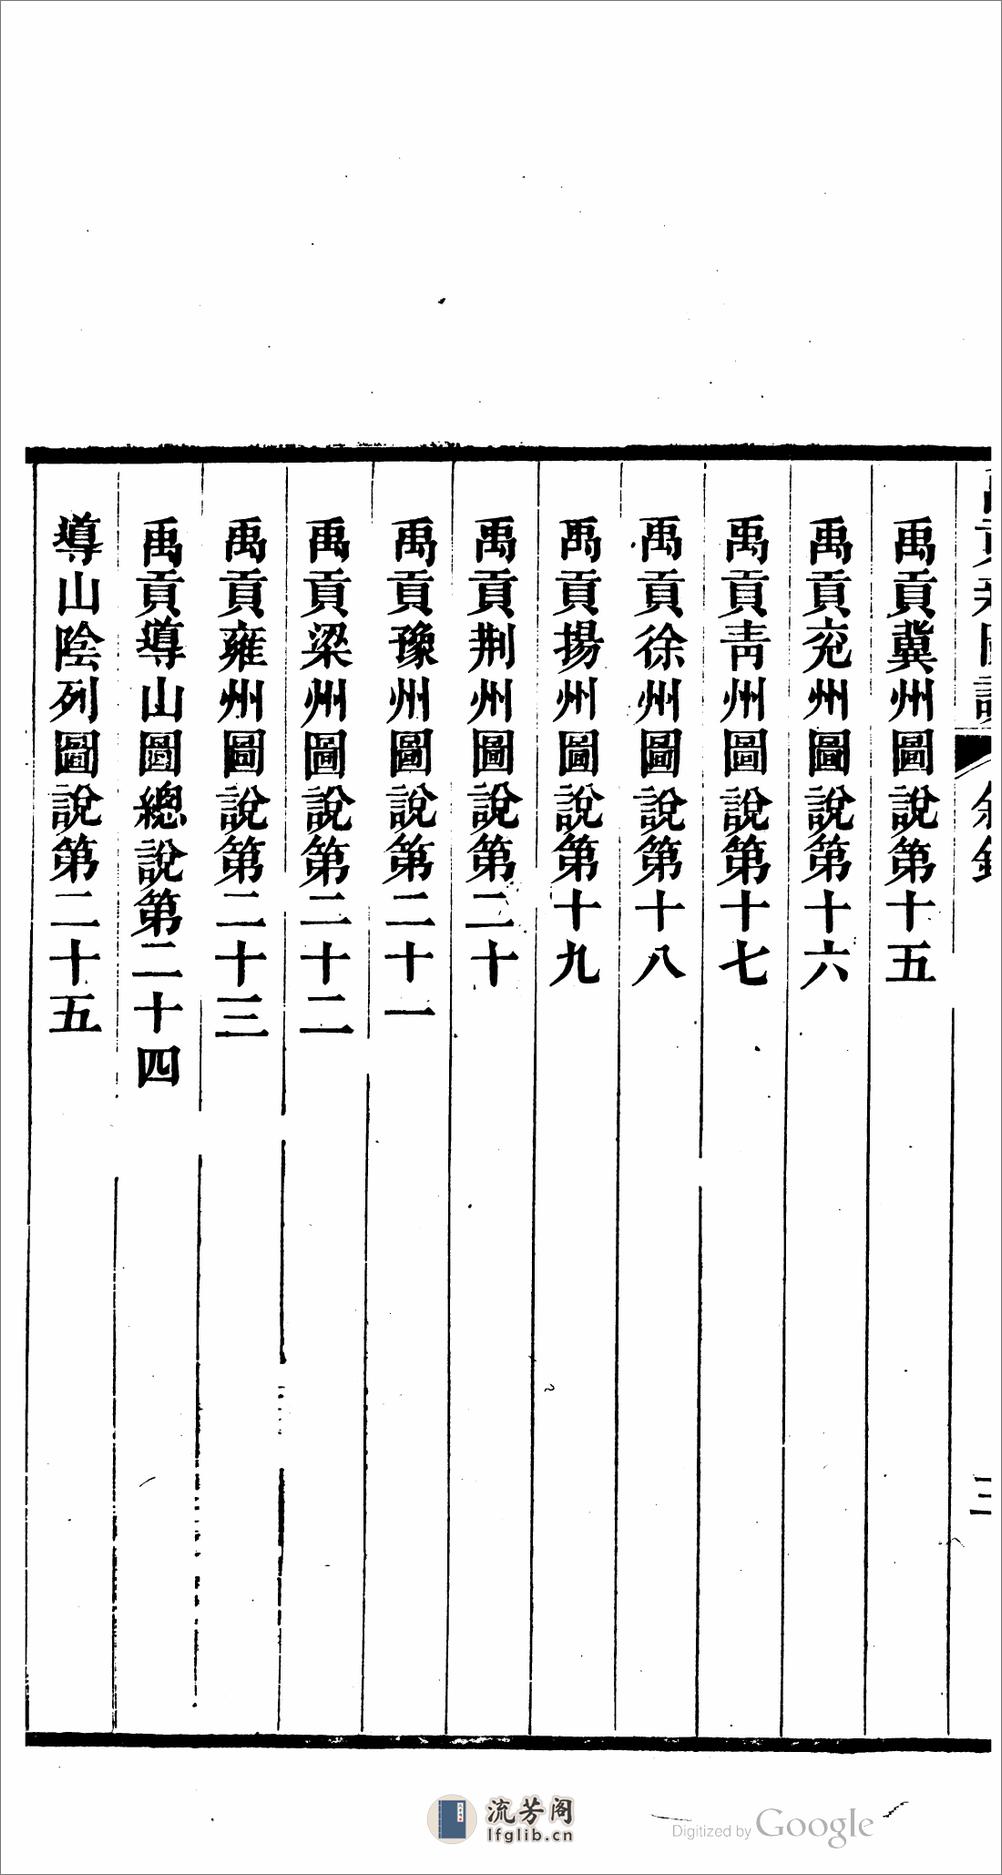 禹貢冀州圖說第十五
禹貢兖州圖說第十六
禹貢青州圖說第十七
禹貢徐州圖說第十八
禹貢揚州圖說第十九
禹貢荆州圖說第二十
禹貢豫州圖說第二十一
禹貢梁州圖說第二十二
禹貢雍州圖說第二十三
禹貢導山圖總說第二十四
導山陰列圖說第二十五
流芳阁
lfglib.cn
Digitized by Google